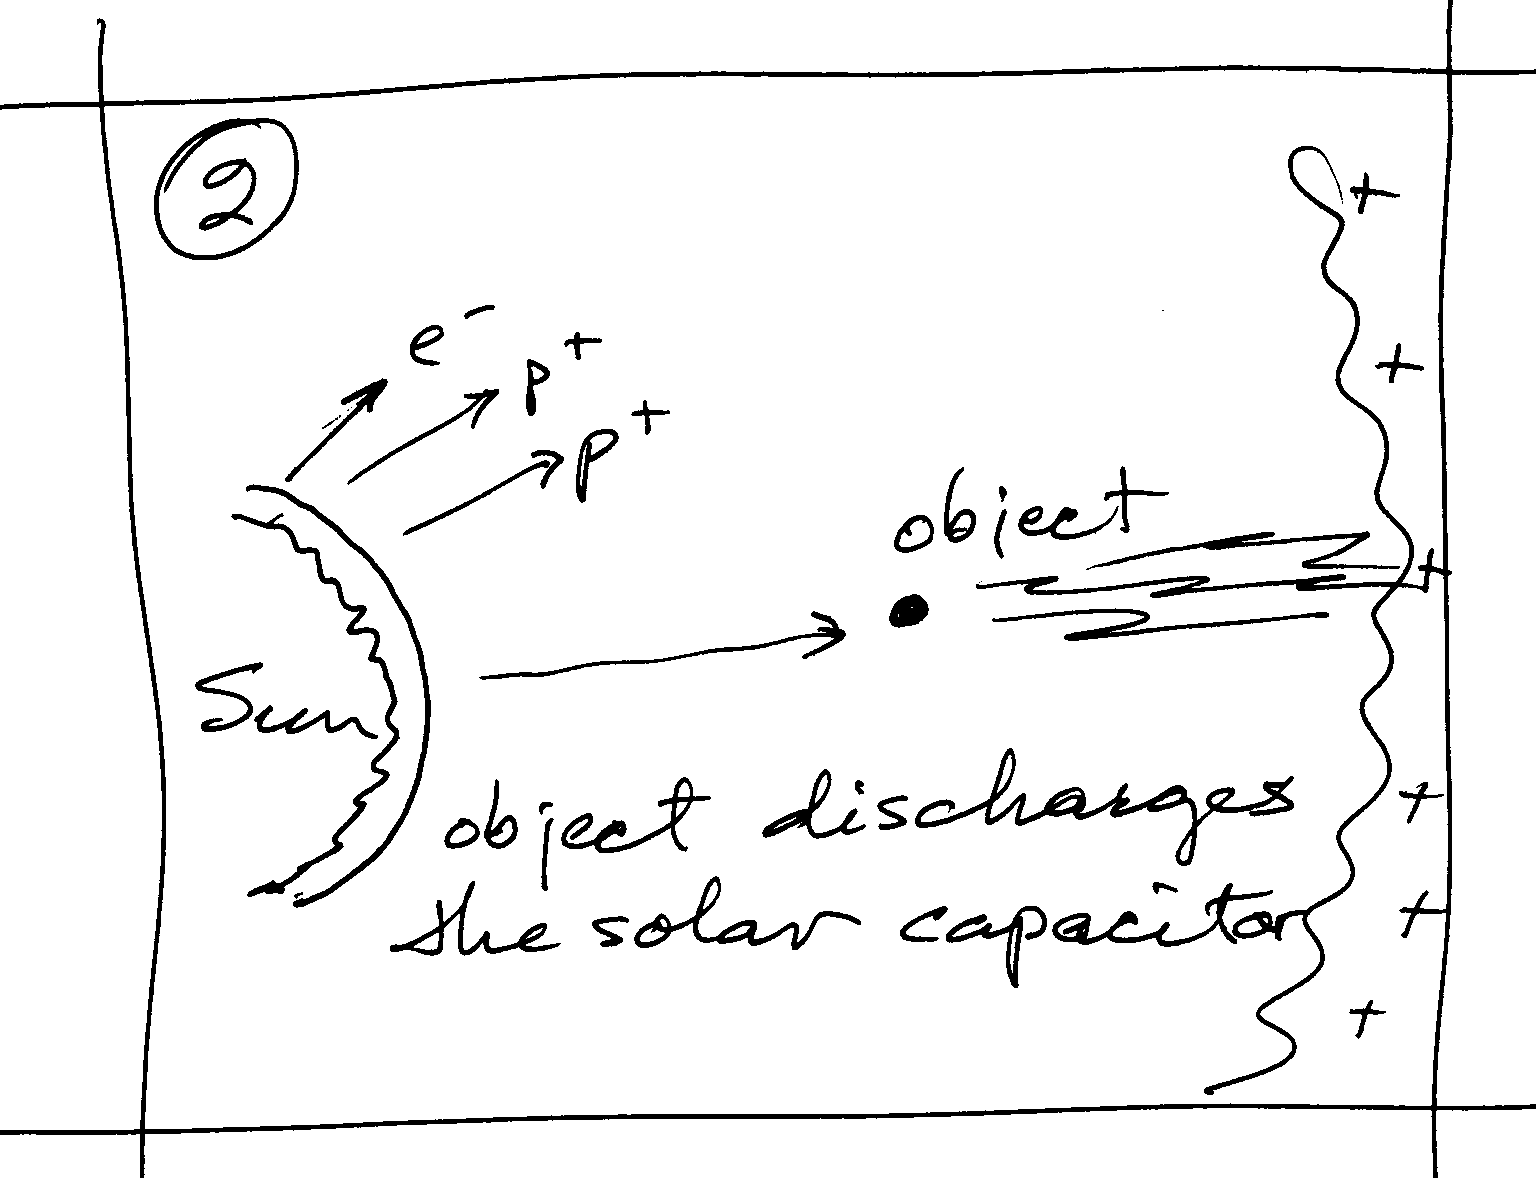 2
e⁻
p⁺
p⁺
object
Sun
object discharges
the solar capacitor
+
+
+
+
+
+